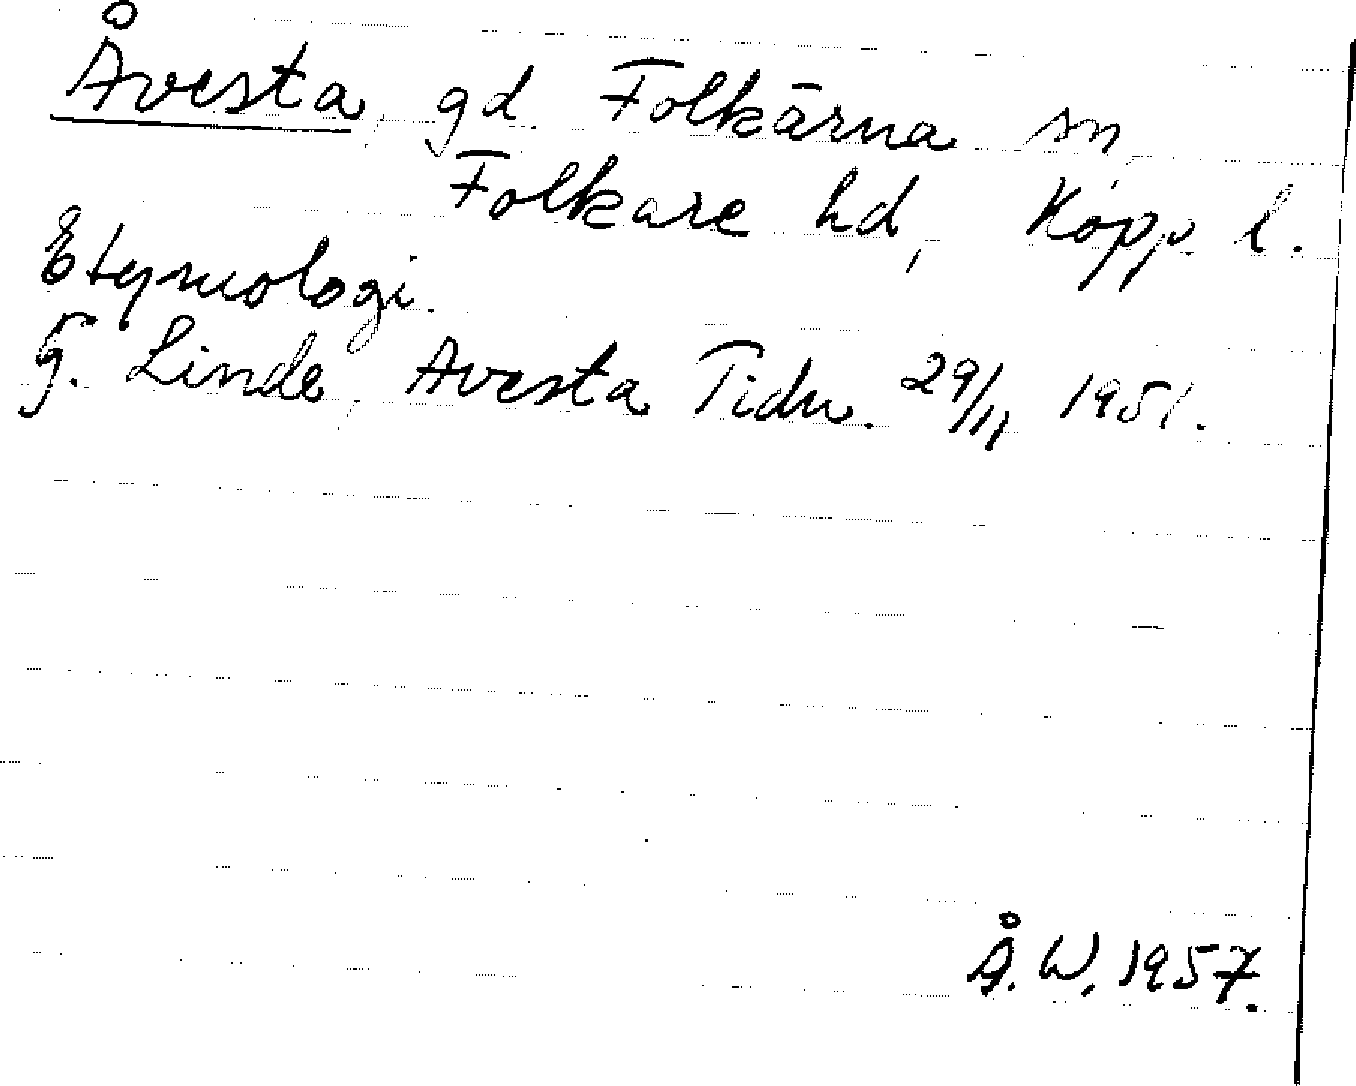 Åvesta, gd. Folkärna sn,
Folkare hd, Kopp. l.
Etymologi.
G. Linde, Avesta Tidn. 29/11 1951.
Å. W. 1957.